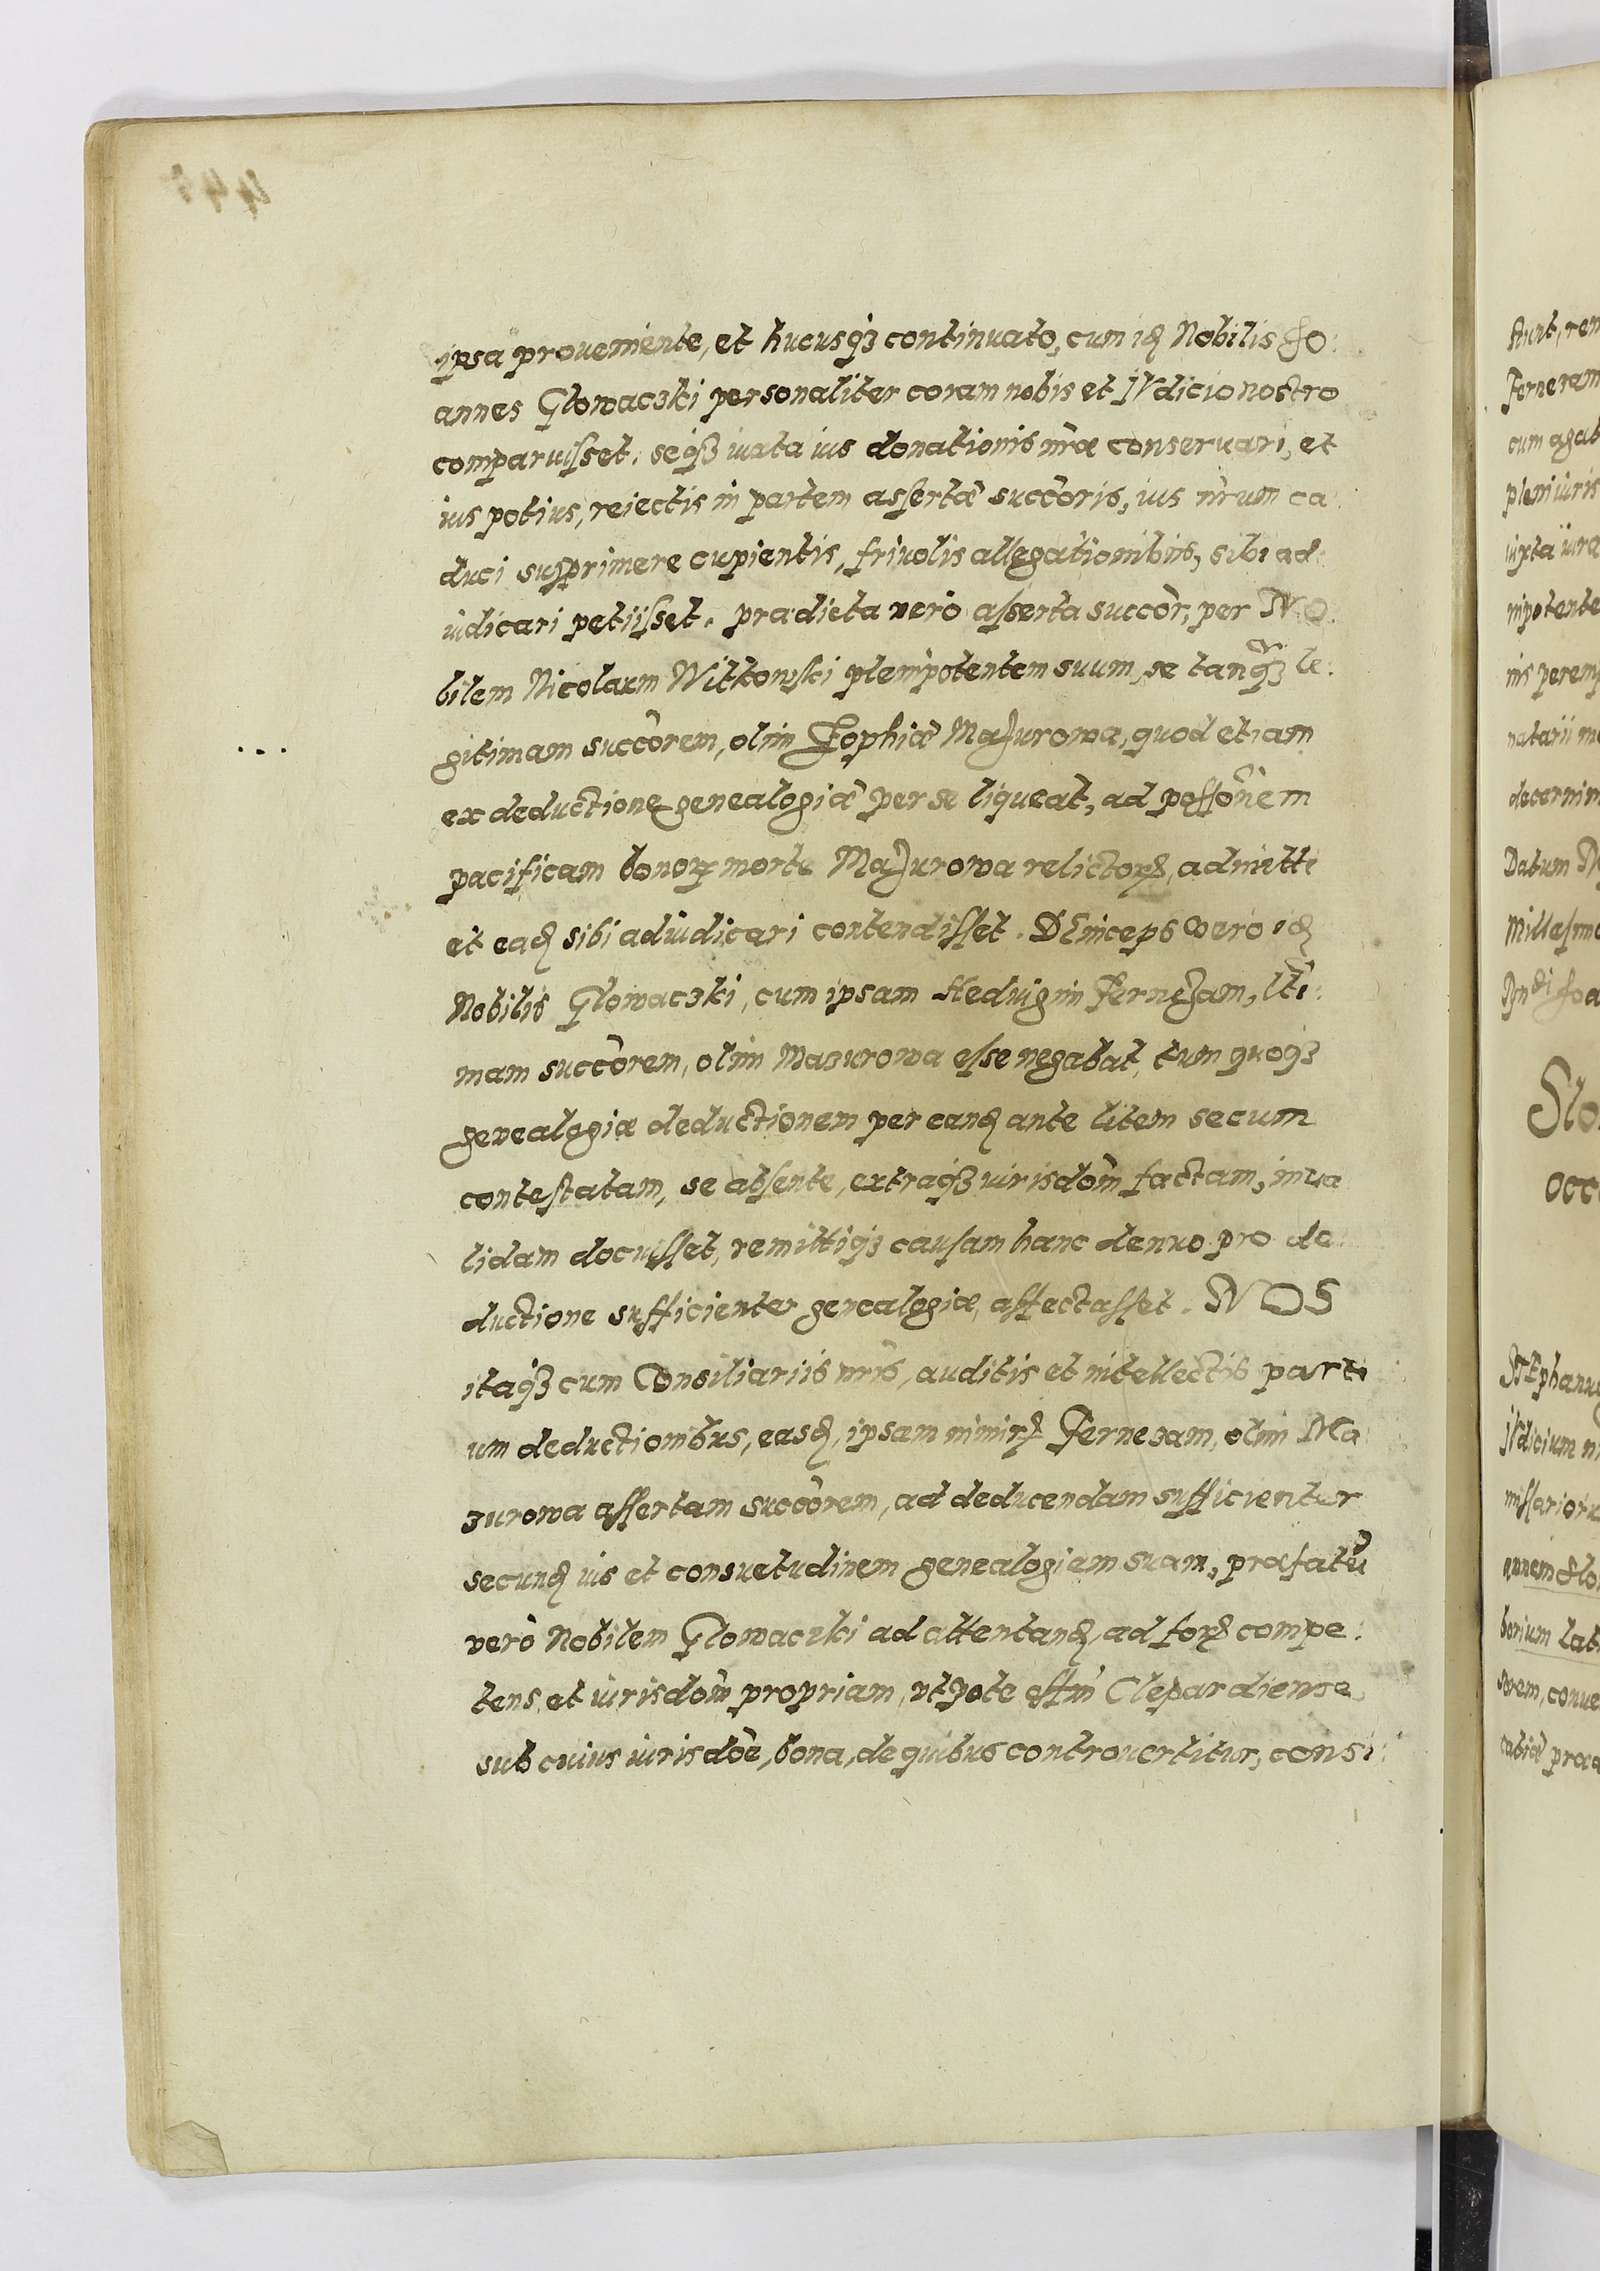 ipsa proueniente, et hucusqȝ continuato, cum idē Nobilis Jo:
annes Glowacȝki personaliter coram nobis et IVdicio nostro
comparuiſset. seqȝ iuxta ius donationis nr̃æ conseruari, et
ius potius, reiectis in partem aſsertæ succ̃oris, ius nr̃um ca
duci suſprimere cupientis, friuolis allegationibus, sibi ad:
iudicari petiiſset. prædicta verò aſserta succ̃or, per NO:
bilem Nicolaum Witkowſki plenipotentem suum, se tanqȝ le:
gitimam succ̃orem, olim Zophiæ Mazurowa, quod etiam
ex deductione genealogiæ per se liqueat, ad poſſõnem
pacificam bonoꝝ morte Mazurowa relictoꝝ, admitti
et eadē sibi adiudicari contendiſſet. DEinceps vero idē
Nobilis Glowacȝki, cum ipsam Heduigim Ferneȝam, ltĩ:
mam succ̃orem, olim Maȝurowa eſse negabat, tum quoqȝ
genealogiæ deductionem per eandē ante litem secum
conteſtatam, se abſente, extraqȝ iurisdõm factam, inua
lidam docuiſſet, remittiqȝ cauſam hanc denuo pro de:
ductione sufficienter genealogiæ, affectaſſet. NOS
itaqȝ cum Consiliariis nr̃is, auditis et intellectis parti
um deductionibus, easdē, ipsam nimirꝝ Ferneȝam, olim Ma
ȝurowa aſſertam succ̃orem, ad deducendam sufficienter
secundē ius et consuetudinem genealogiam suam, præfatũ
verò Nobilem Glowacȝki ad attentandē, ad foꝝ compe:
tens, et iurisdõm propriam, vtpote offm̃ Clepardiense,
sub cuius iurisdõe, bona, de quibus controuertitur, consi:
ſtunt, rem
cum agat
pleni iuris
iuxta iura
nipotente
nis peremp
natarii
decernim
Datum
Milleſimo
Slo
occ
STEphanus
IVdicium
miſſarioru
borium Lat